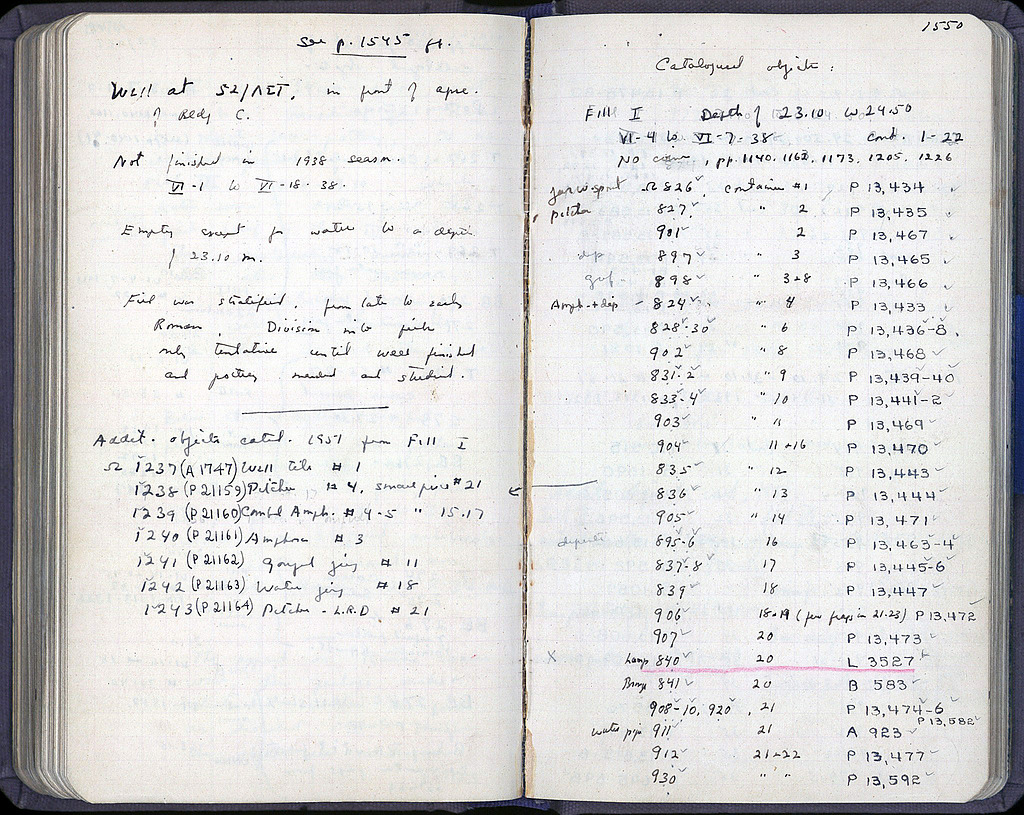 See p. 1545 ff.
Well at 52/ΛΣΤ, in front of apse
of Bldg C.
Not finished in 1938 season.
VI-1 to VI-18-38.
Empty except for water to a depth
of 23.10 m.
Fill was stratified, from late to early
Roman. Division into periods
only tentative until well finished
and pottery mended and studied.
Addit. objects catal. 1951 from Fill I
Ω 1237 (A 1747) Well tile #1
1238 (P 21159) Pitcher #4, small piece #21
1239 (P 21160) Combed Amph. #4-5 " 15.17
1240 (P 21161) Amphora #3
1241 (P 21162) Gouged jug #11
1242 (P 21163) Water jug #18
1243 (P 21164) Pitcher - L.R.D #21
1550
Catalogued objects:
Fill I Depth of 23.10 to 24.50
VI-4 to VI-7-38 cont. 1-22
No cont., pp. 1140. 1162. 1173. 1205. 1226
jar w spout Ω 826 container #1 P 13,434
pitcher 827 " 2 P 13,435
901 2 P 13,467
897 " 3 P 13,465
898 " 3+8 P 13,466
Amph. + dip - 824 " 4 P 13,433
828-30 " 6 P 13,436-8
902 " 8 P 13,468
831-2 " 9 P 13,439-40
833-4 " 10 P 13,441-2
903 " 11 P 13,469
904 11+16 P 13,470
835 " 12 P 13,443
836 " 13 P 13,444
905 " 14 P 13,471
895-6 16 P 13,463-4
837-8 17 P 13,445-6
839 18 P 13,447
906 18+19 (few frags in 21.23) P 13,472
907 20 P 13,473
X Lamp 840 20 L 3527
Bronze 841 20 B 583
908-10, 920, 21 P 13,474-6
P 13,582
water pipe 911 21 A 923
912 21+22 P 13,477
930 " " P 13,592